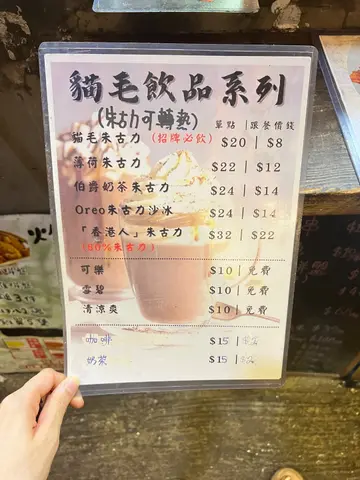 貓毛飲品系列
(朱古力可轉熱)
單點 | 跟餐價錢
貓毛朱古力 (招牌必飲) $20 | $8
薄荷朱古力 $22 | $12
伯爵奶茶朱古力 $24 | $14
Oreo朱古力沙冰 $24 | $14
「香港人」朱古力 $32 | $22
(80%朱古力)
可樂 $10 | 免費
雪碧 $10 | 免費
清涼爽 $10 | 免費
咖啡 $15 |
奶茶 $15 |